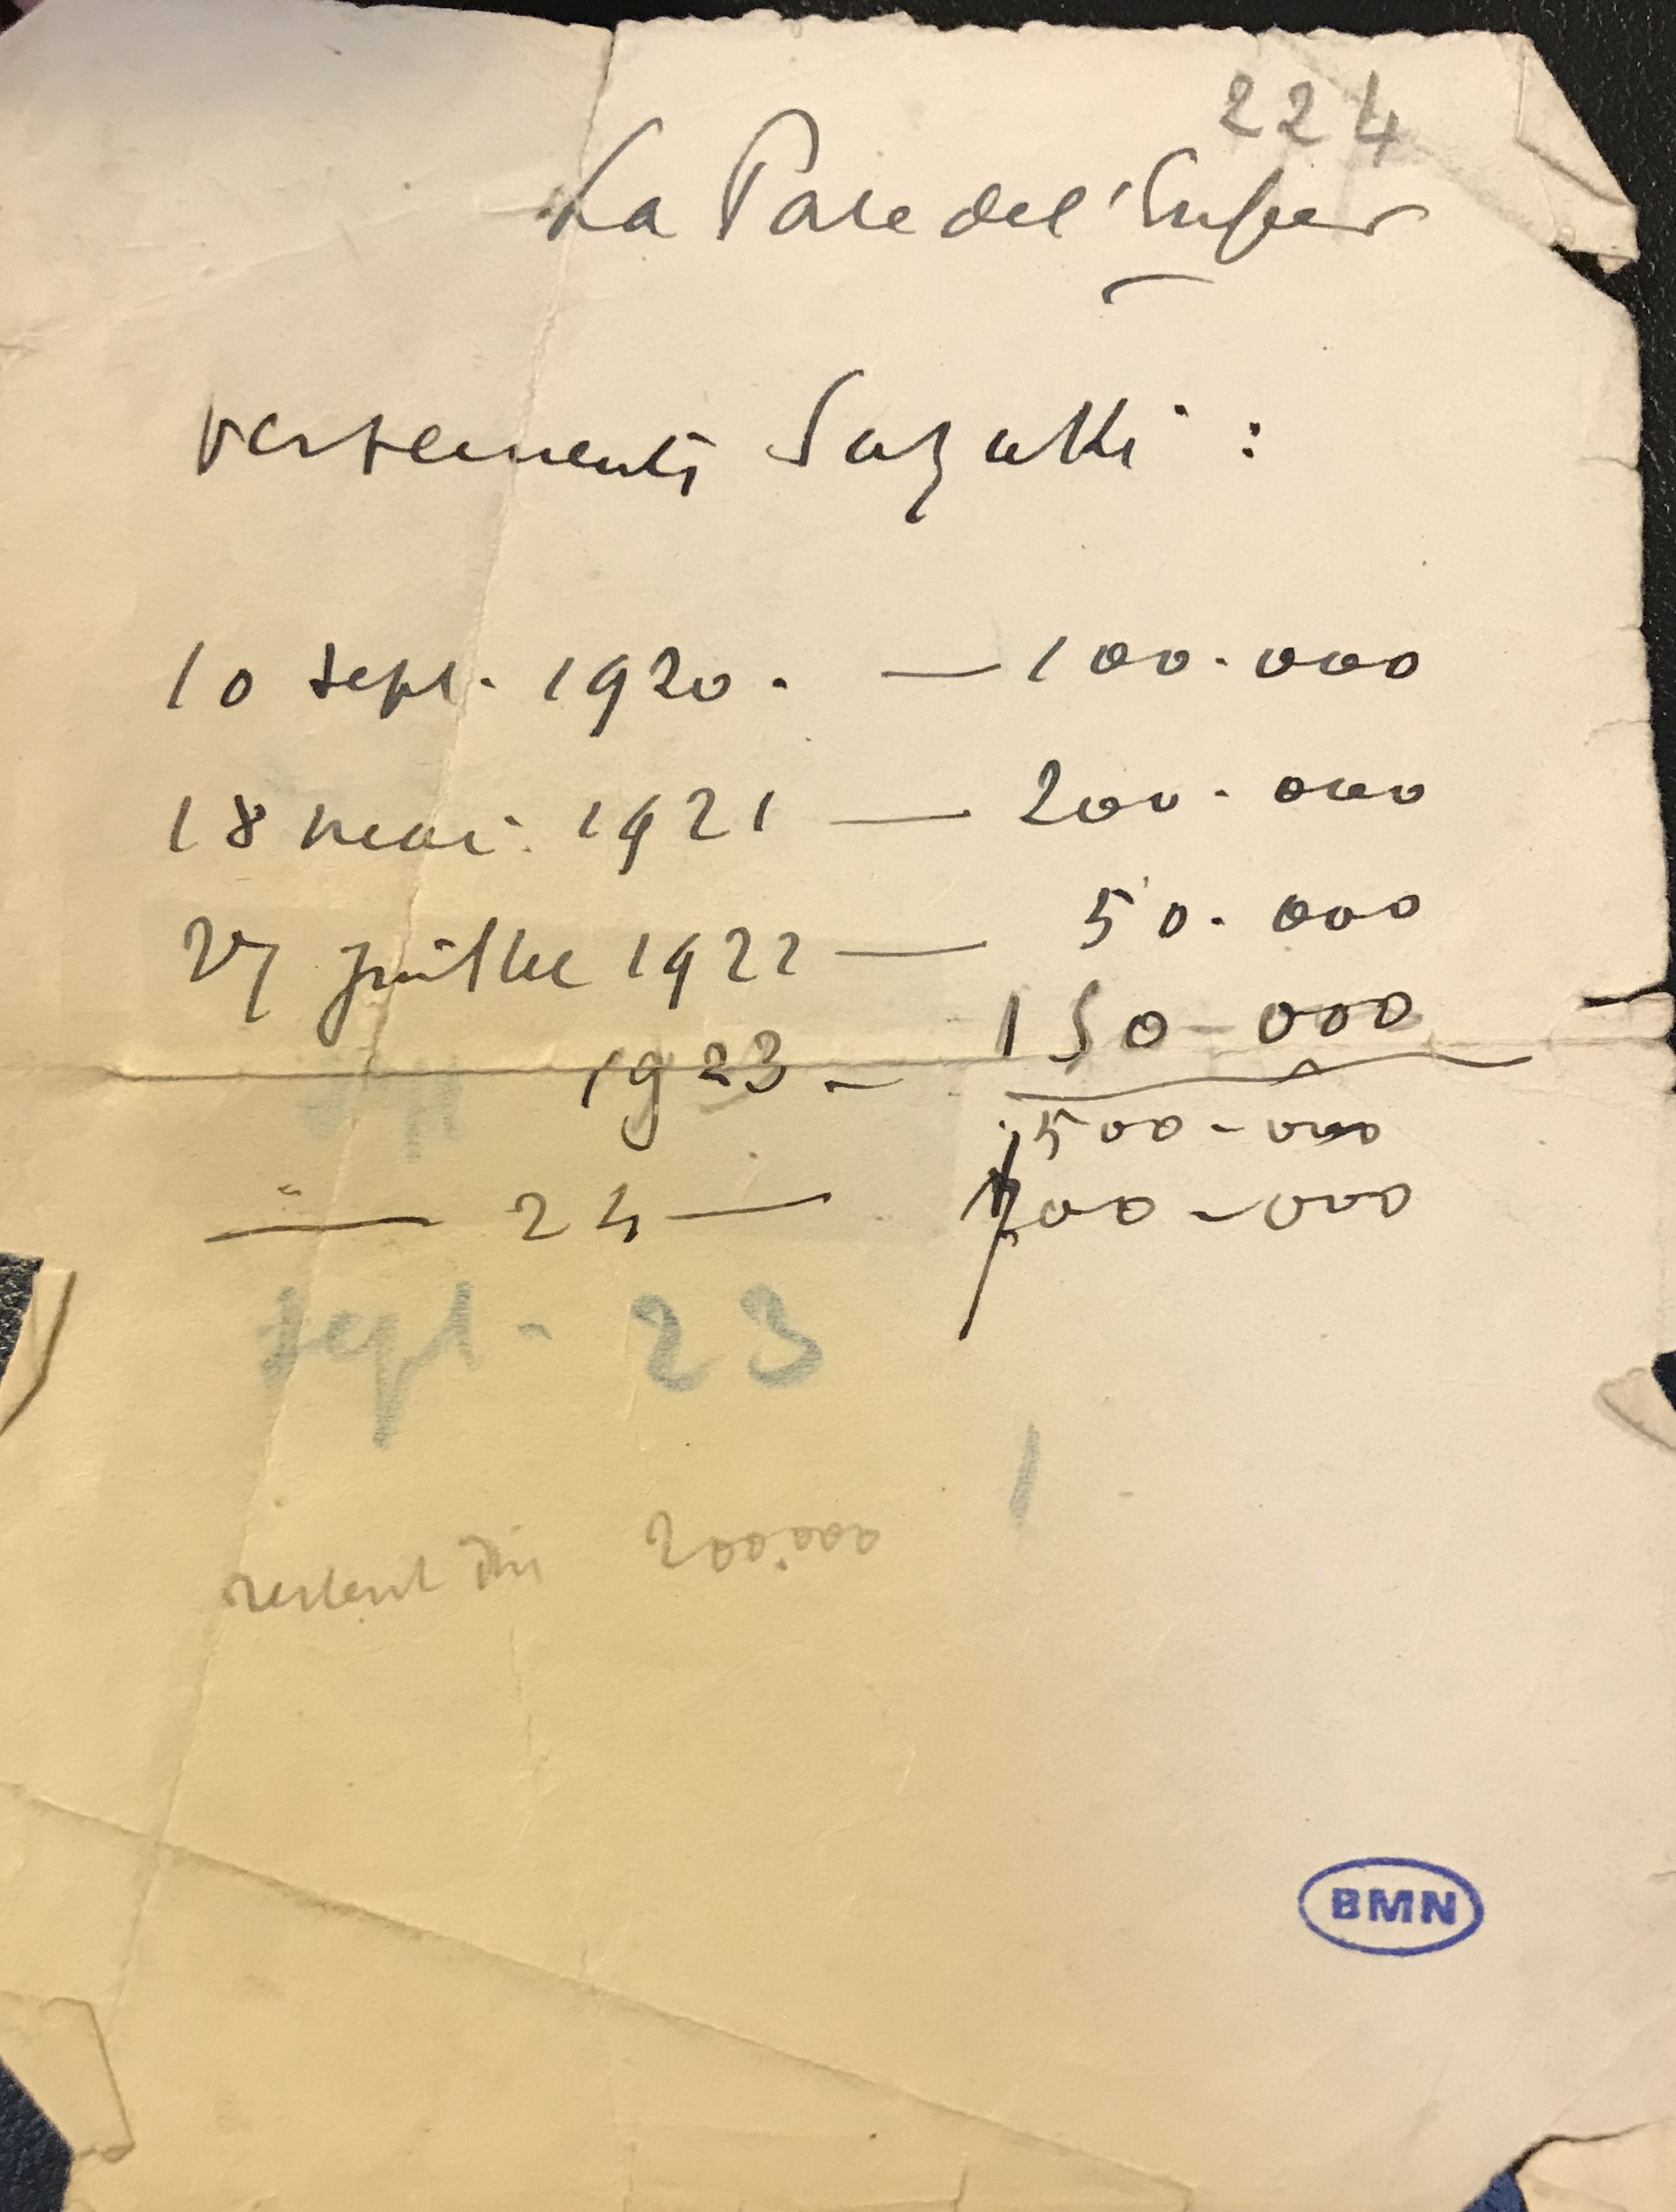 224
La Porte de l'Enfer
versements Suzuki :
10 sept. 1920. — 100.000
18 mai. 1921 — 200.000
27 juillet 1922 — 50.000
1923 — 150-000
500-000
— " — 24 — 00-000
sept - 23
1
restent 200.000
BMN